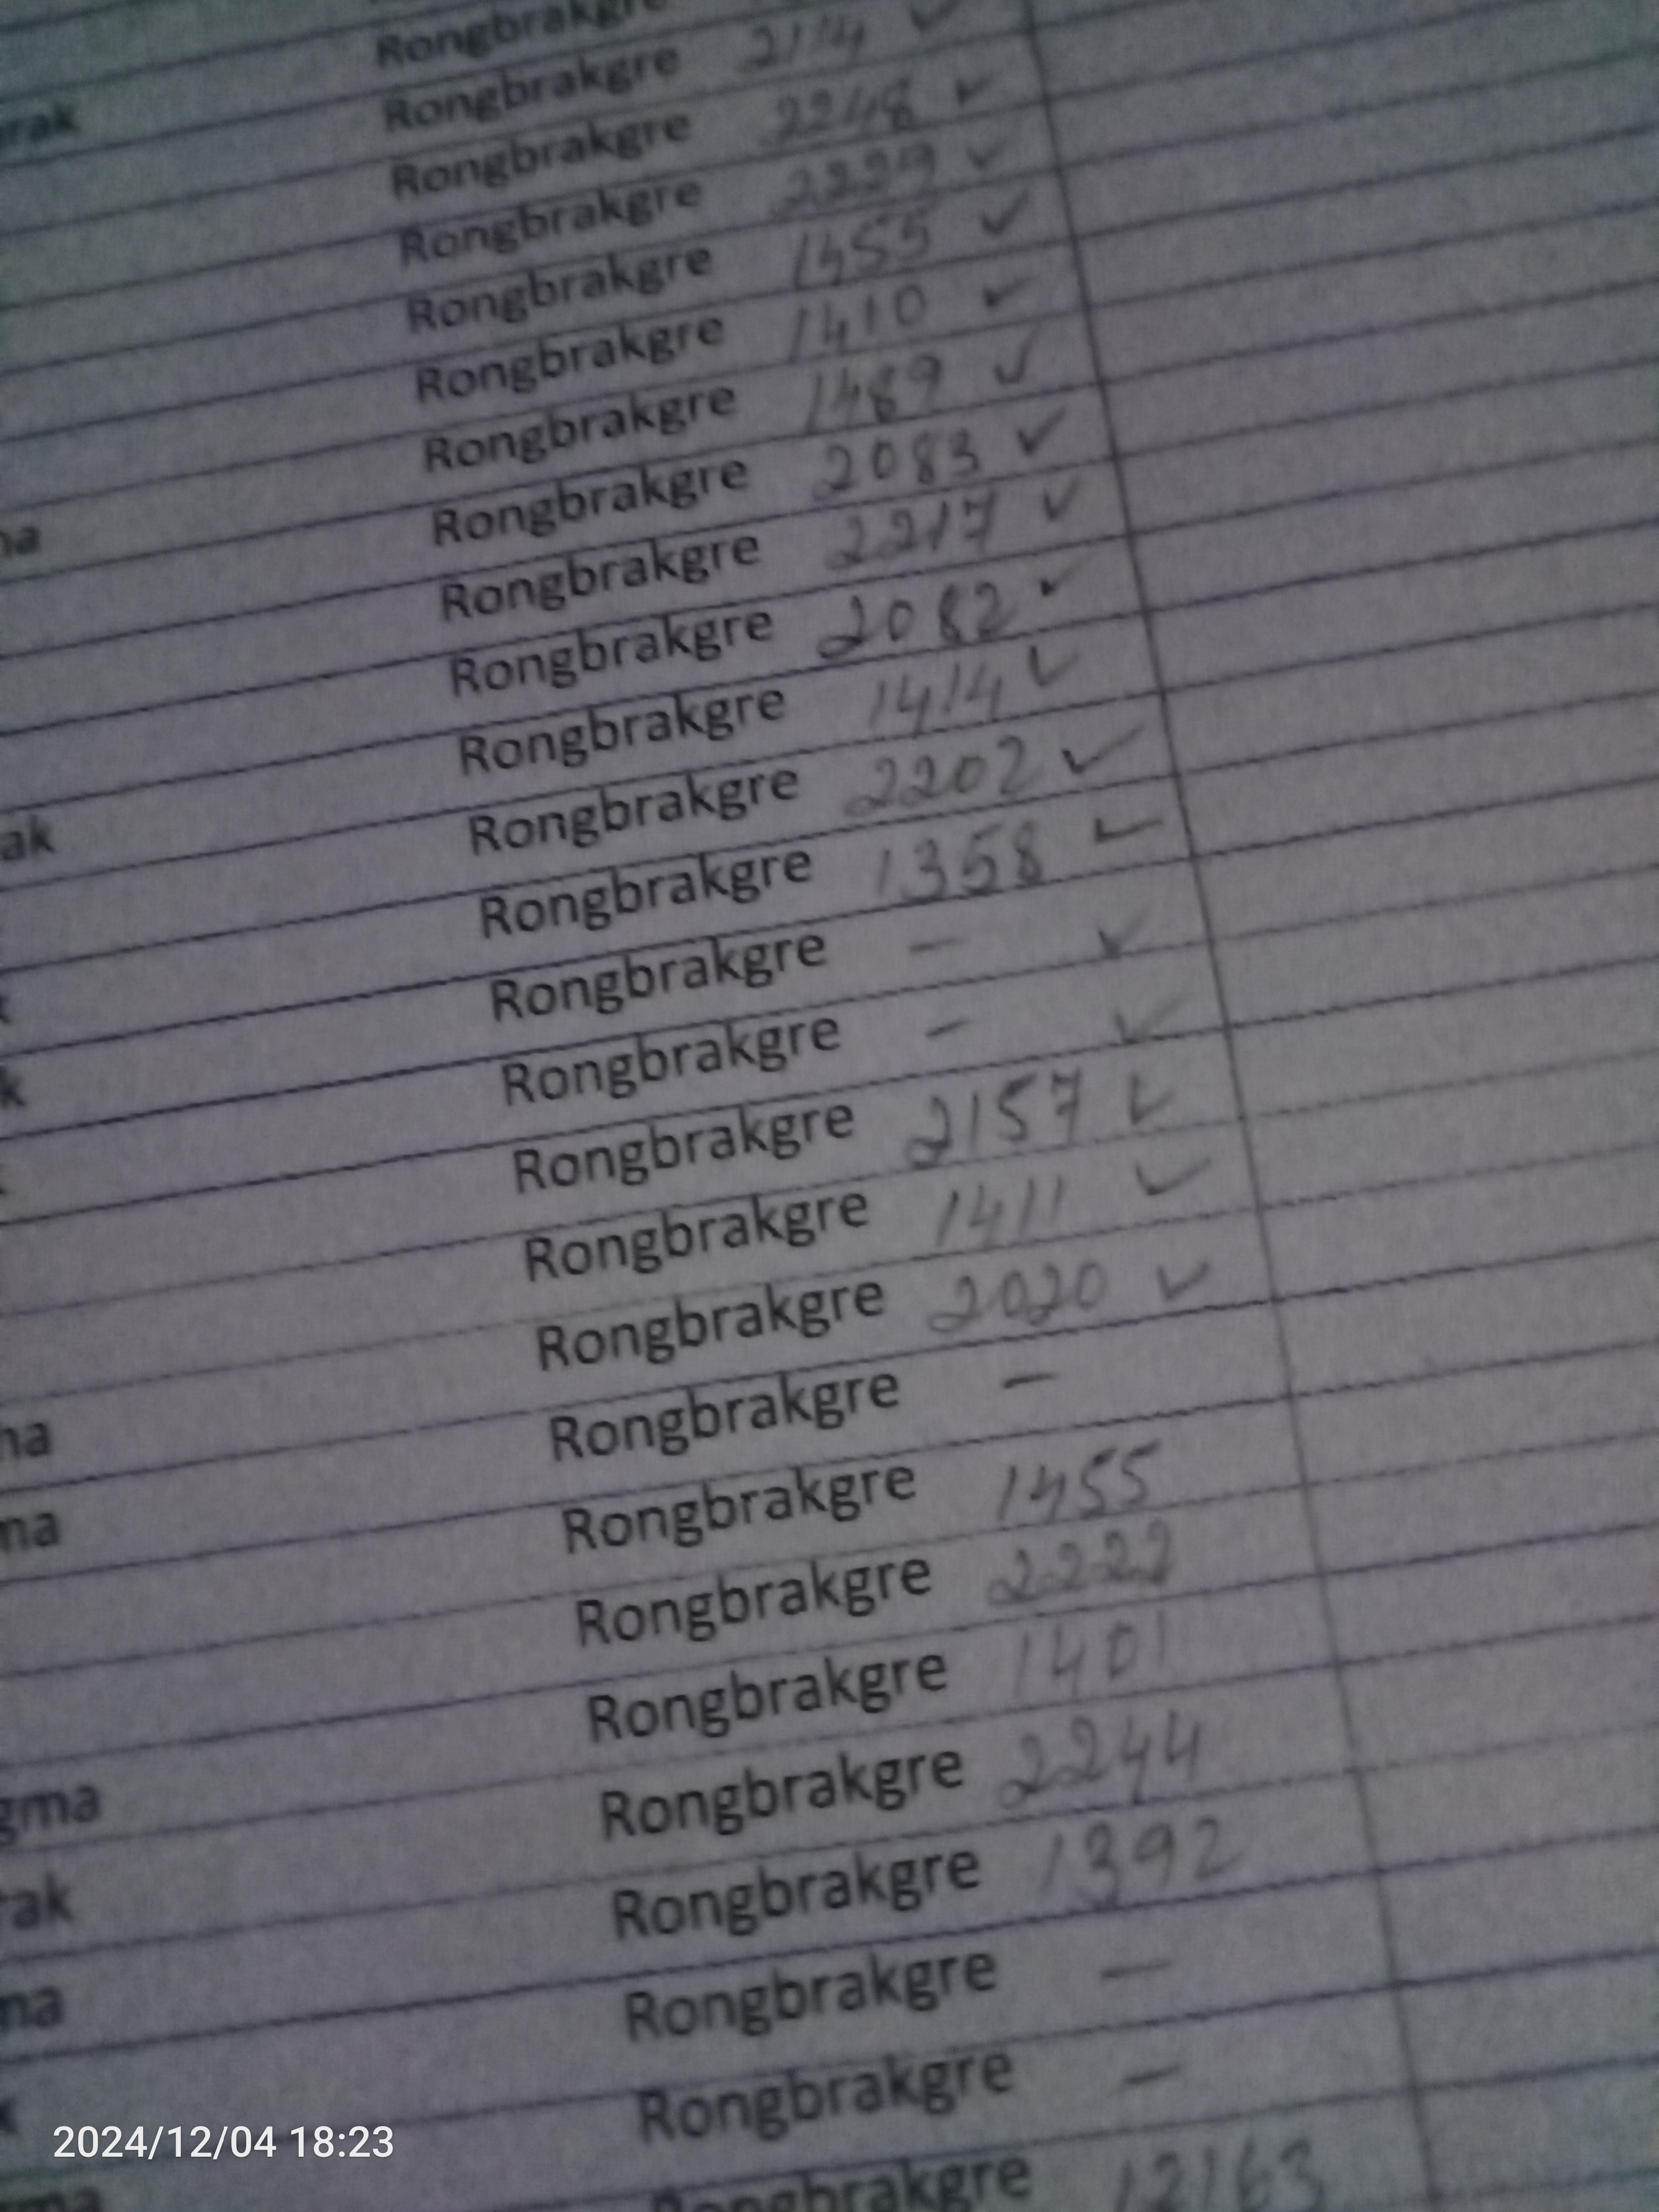 Rongbrakgre
rak Rongbrakgre 2114 ✓
Rongbrakgre 2248 ✓
Rongbrakgre ✓
Rongbrakgre 1455 ✓
Rongbrakgre 1410 ✓
Rongbrakgre 1489 ✓
na Rongbrakgre 2083 ✓
Rongbrakgre 2217 ✓
Rongbrakgre 2082 ✓
Rongbrakgre 1414 ✓
ak Rongbrakgre 2202 ✓
Rongbrakgre 1358 ✓
Rongbrakgre – ✓
k Rongbrakgre – ✓
Rongbrakgre 2157 ✓
Rongbrakgre 1411 ✓
Rongbrakgre 2020 ✓
na Rongbrakgre –
ma Rongbrakgre 1455
Rongbrakgre 2222
Rongbrakgre 1401
gma Rongbrakgre 2244
rak Rongbrakgre 1392
ma Rongbrakgre –
k Rongbrakgre –
ma Rongbrakgre
2024/12/04 18:23